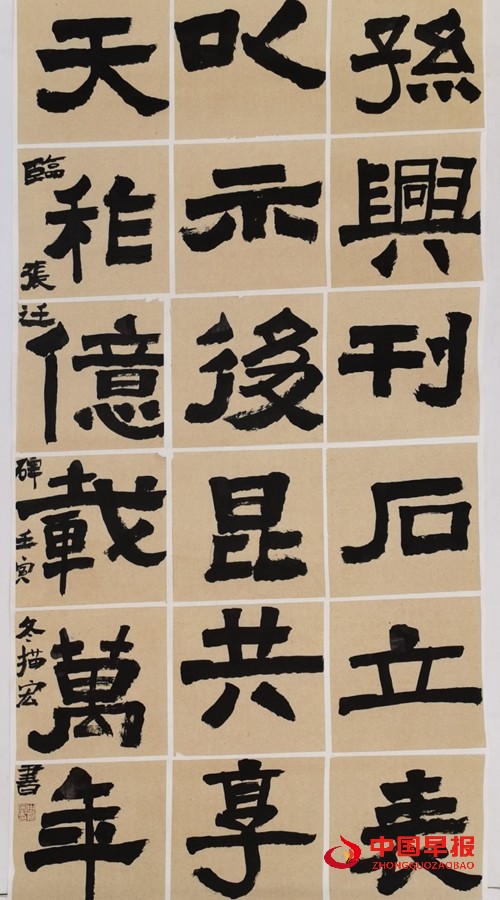 孫興刊石立表
㠯示後昆共享
天祚億載萬年
臨張迁碑壬寅冬描宏書
中国早报
ZHONGGUOZAOBAO